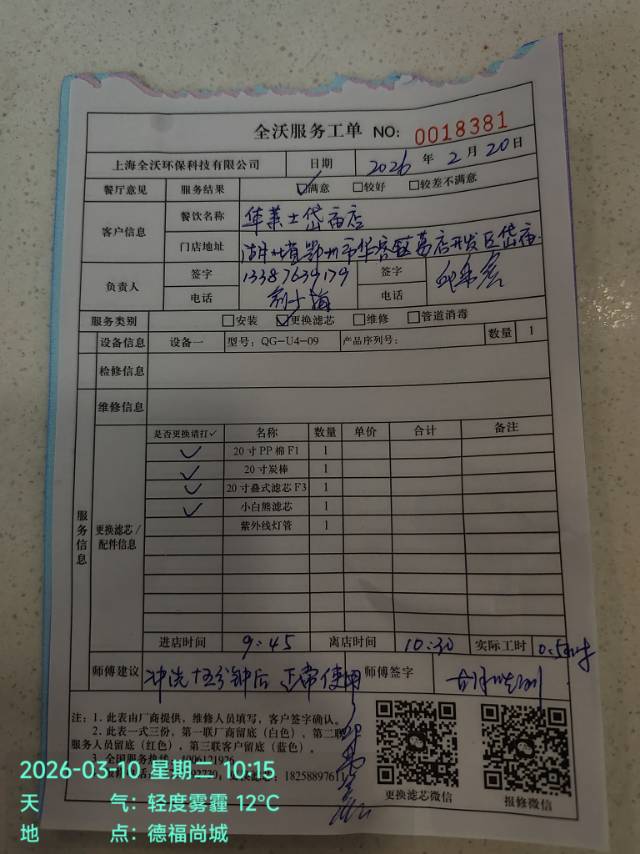 全沃服务工单 NO: 0018381
上海全沃环保科技有限公司 日期 2026 年 2 月 20 日
餐厅意见 服务结果 ☑满意 □较好 □较差不满意
客户信息 餐饮名称 华莱士岱庙店
门店地址 湖北省鄂州市华容区葛店开发区岱庙
负责人 签字 13387639179 签字
电话 电话
服务类别 □安装 ☑更换滤芯 □维修 □管道消毒
设备信息 设备一 型号: QG-U4-09 产品序列号: 数量 1
检修信息
维修信息
服务信息
更换滤芯/配件信息
是否更换请打✓ 名称 数量 单价 合计 备注
✓ 20寸PP棉F1 1
✓ 20寸炭棒 1
✓ 20寸叠式滤芯F3 1
✓ 小白熊滤芯 1
紫外线灯管 1
进店时间 9:45 离店时间 10:30 实际工时
师傅建议 冲洗十五分钟后 正常使用 师傅签字
注: 1. 此表由厂商提供, 维修人员填写, 客户签字确认。
2. 此表一式三份, 第一联厂商留底(白色), 第二联
服务人员留底(红色), 第三联客户留底(蓝色)。
3. 全国服务热线 4006121926
18258897611
更换滤芯微信 报修微信
2026-03-10 星期二 10:15
天 气: 轻度雾霾 12℃
地 点: 德福尚城